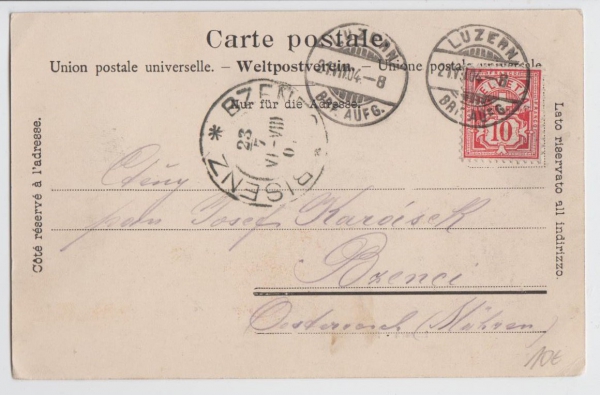 Carte postale.
Union postale universelle. – Weltpostverein. – Unione postale universale
Nur für die Adresse.
Côté réservé à l'adresse.
Lato riservato all indirizzo.
LUZERN
21.VII.04.–8
BRF. AUFG.
LUZERN
21.VII.04.–8
BRF. AUFG.
HELVETIA
10
BZENEC
23
7
VI-VIII
* BISENZ *
Ctěný
pan Josef
Bzenci
Oesterreich (Mähren)
10€